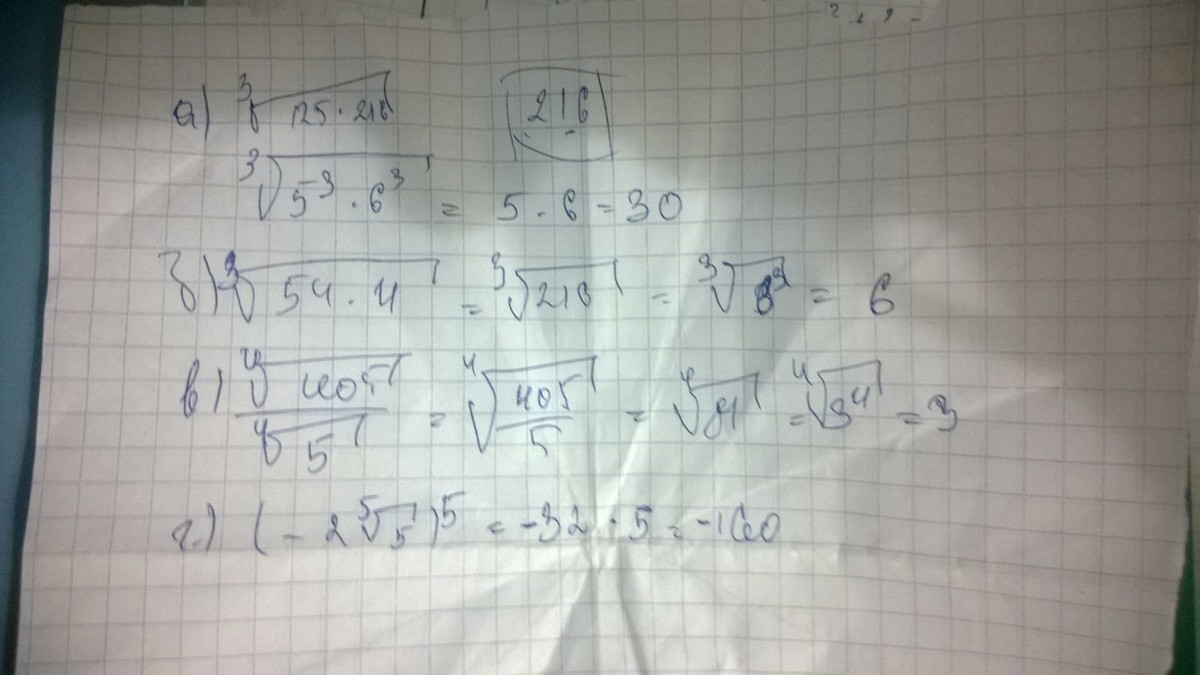 а) ∛(125 · 216) 216
∛(5³ · 6³) = 5 · 6 = 30
б) ∛(54 · 4) = ∛216 = = 6
в) ∜405 / ∜5 = ∜(405/5) = ∜81 = ∜3⁴ = 3
г.) (-2 ⁵√5)⁵ = -32 · 5 = -160